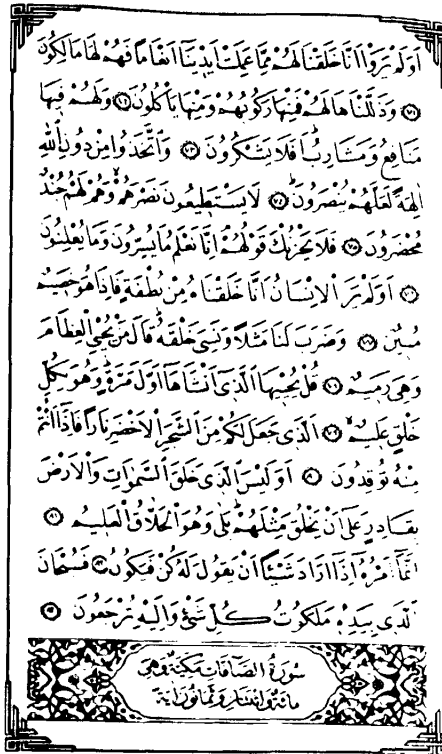 اَوَلَمْ يَرَوْا اَنَّا خَلَقْنَا لَهُمْ مِمَّا عَمِلَتْ اَيْدِينَا اَنْعَامًا فَهُمْ لَهَا مَالِكُونَ
﴿٧١﴾ وَذَلَّلْنَاهَا لَهُمْ فَمِنْهَا رَكُوبُهُمْ وَمِنْهَا يَأْكُلُونَ ﴿٧٢﴾ وَلَهُمْ فِيهَا
مَنَافِعُ وَمَشَارِبُ اَفَلَا يَشْكُرُونَ ﴿٧٣﴾ وَاتَّخَذُوا مِنْ دُونِ اللّٰهِ
اٰلِهَةً لَعَلَّهُمْ يُنْصَرُونَ ﴿٧٤﴾ لَا يَسْتَطِيعُونَ نَصْرَهُمْ وَهُمْ لَهُمْ جُنْدٌ
مُحْضَرُونَ ﴿٧٥﴾ فَلَا يَحْزُنْكَ قَوْلُهُمْ اِنَّا نَعْلَمُ مَا يُسِرُّونَ وَمَا يُعْلِنُونَ
﴿٧٦﴾ اَوَلَمْ يَرَ الْاِنْسَانُ اَنَّا خَلَقْنَاهُ مِنْ نُطْفَةٍ فَاِذَا هُوَ خَصِيمٌ
مُبِينٌ ﴿٧٧﴾ وَضَرَبَ لَنَا مَثَلًا وَنَسِيَ خَلْقَهُ قَالَ مَنْ يُحْيِي الْعِظَامَ
وَهِيَ رَمِيمٌ ﴿٧٨﴾ قُلْ يُحْيِيهَا الَّذِي اَنْشَاَهَا اَوَّلَ مَرَّةٍ وَهُوَ بِكُلِّ
خَلْقٍ عَلِيمٌ ﴿٧٩﴾ اَلَّذِي جَعَلَ لَكُمْ مِنَ الشَّجَرِ الْاَخْضَرِ نَارًا فَاِذَا اَنْتُمْ
مِنْهُ تُوقِدُونَ ﴿٨٠﴾ اَوَلَيْسَ الَّذِي خَلَقَ السَّمٰوَاتِ وَالْاَرْضَ
بِقَادِرٍ عَلٰى اَنْ يَخْلُقَ مِثْلَهُمْ بَلٰى وَهُوَ الْخَلَّاقُ الْعَلِيمُ ﴿٨١﴾
اِنَّمَا اَمْرُهُ اِذَا اَرَادَ شَيْئًا اَنْ يَقُولَ لَهُ كُنْ فَيَكُونُ ﴿٨٢﴾ فَسُبْحَانَ
الَّذِي بِيَدِهِ مَلَكُوتُ كُلِّ شَيْءٍ وَاِلَيْهِ تُرْجَعُونَ ﴿٨٣﴾
سُورَةُ الصَّافَّاتِ مَكِّيَّةٌ وَهِيَ
مِائَةٌ وَاثْنَتَانِ وَثَمَانُونَ اٰيَةً